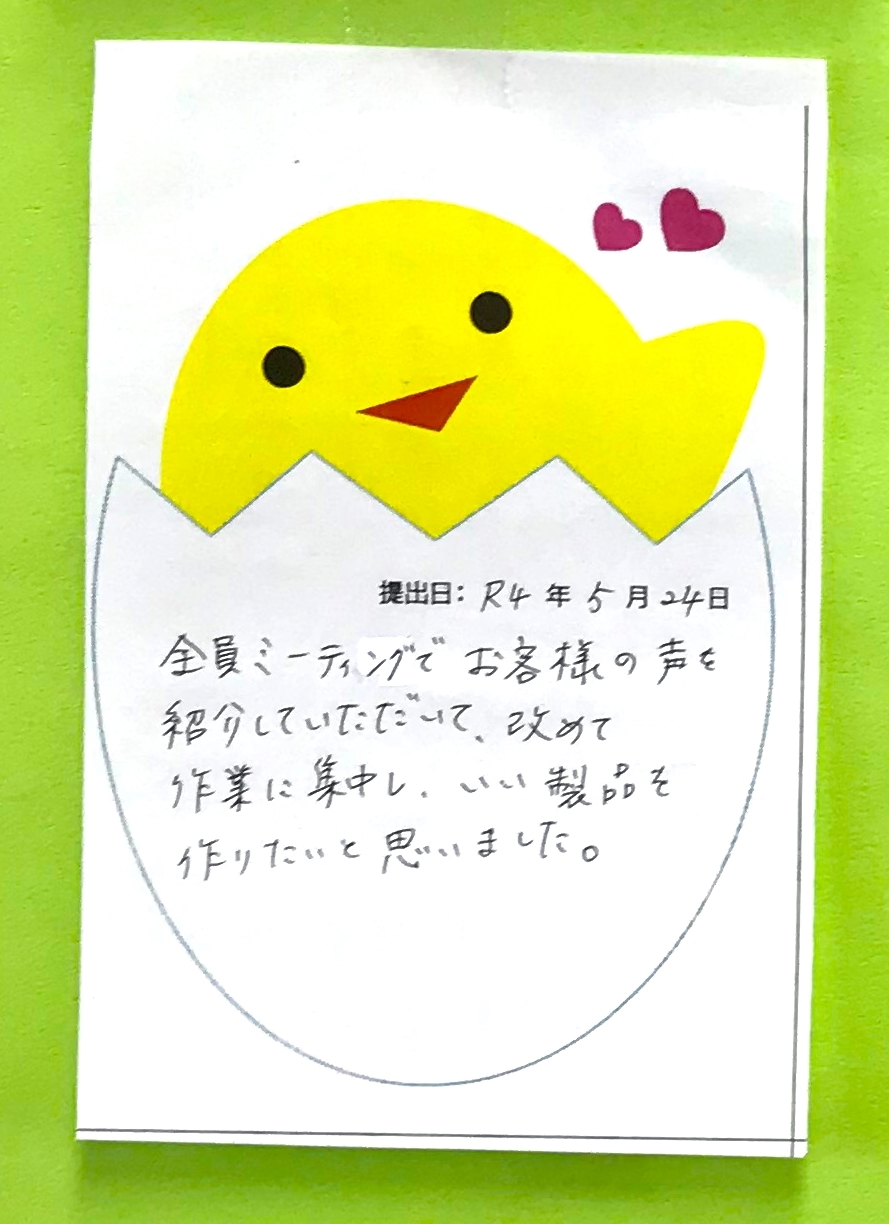 提出日: R4年5月24日
全員ミーティングでお客様の声を
紹介していただいて、改めて
作業に集中し、いい製品を
作りたいと思いました。